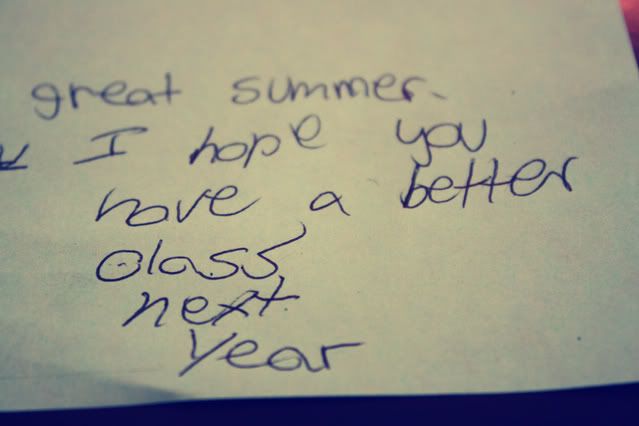 great summer.
I hope you
have a better
class
next
year